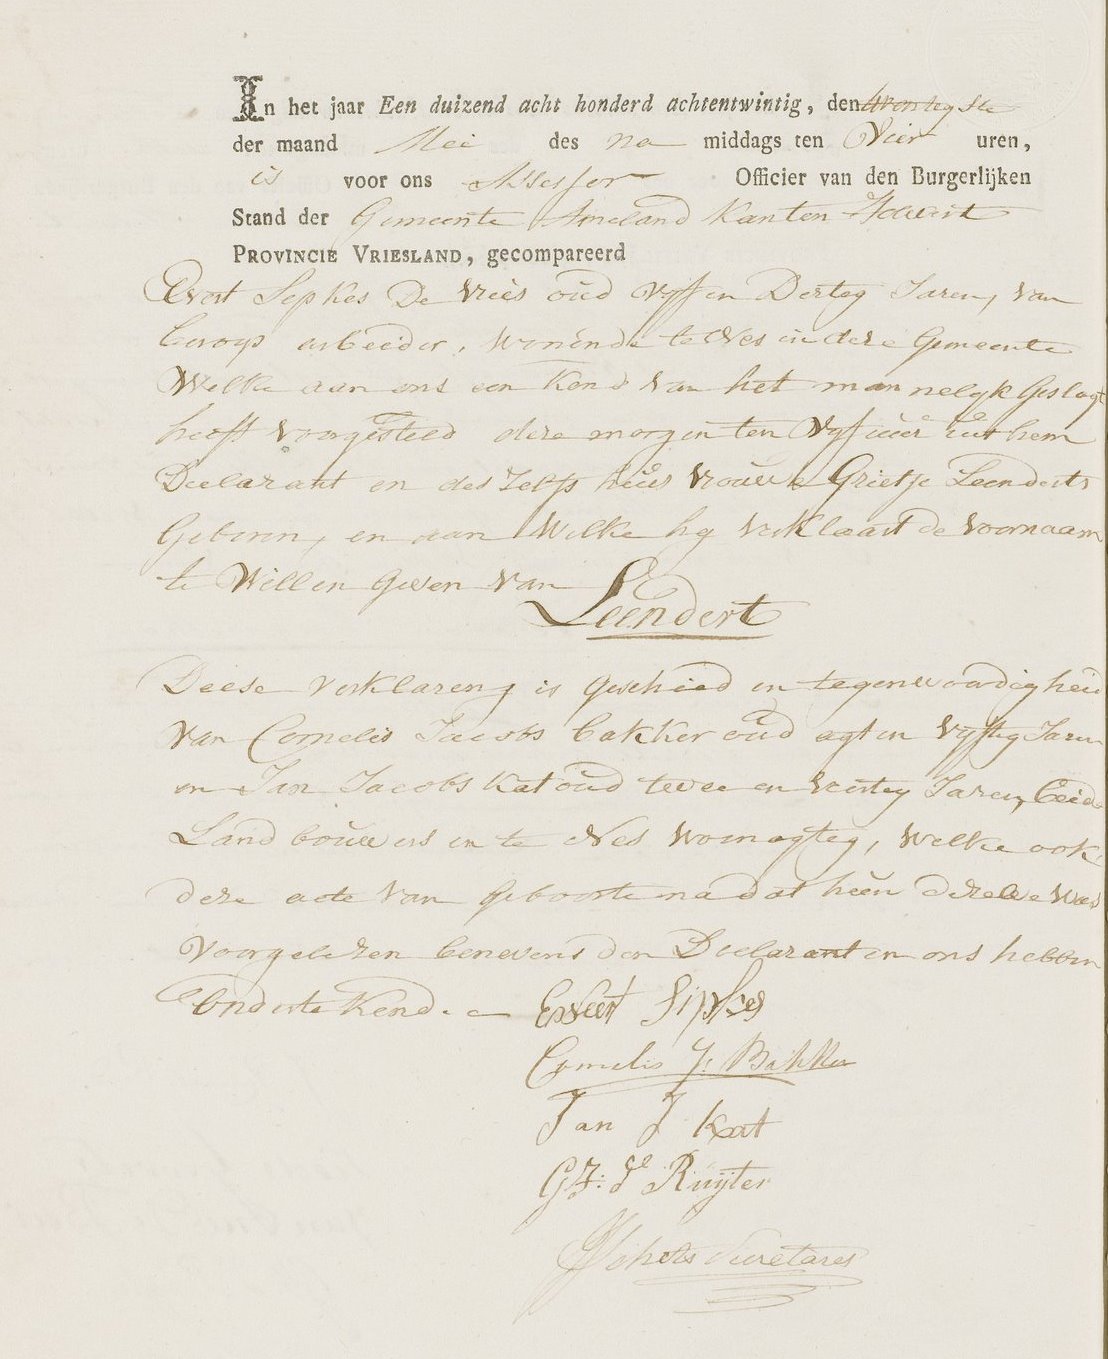 In het jaar Een duizend acht honderd achtentwintig, den twentegste
der maand Mei des na middags ten Vier uren,
is voor ons Assessor Officier van den Burgerlijken
Stand der Gemeente Ameland Kanton Holwert
PROVINCIE VRIESLAND, gecompareerd
Evert Sepkes De Vries oud Vyf en Derteg Jaren, van
beroep arbeider, wonende te Nes in deze Gemeente
Welke aan ons een Kend van het mannelyk Geslagt
heeft voorgesteld deze morgen ten Vyf uuer uit hem
Declarant en des Zelfs huis Vrouwe Grietje Leenderts
Geboren, en aan Welke hy verklaart de voornaam
te Willen Geven van
Leendert
Deese verklareng is geschied in tegenwoordigheid
van Cornelis Jacobs Bakker oud agt en vyftig Jaren
en Jan Jacobs Kat oud twee en veerteg Jaren, Beide
Landbouwers in te Nes woonagteg, welke ook
deze acte van Geboorte na dat heun dezelve was
voorgelezen benevens den Declarant en ons hebben
Onderte Kend.
Evert Sipkes
Cornelis Js Bakker
Jan J Kat
G Z: de Ruijter
Secretares